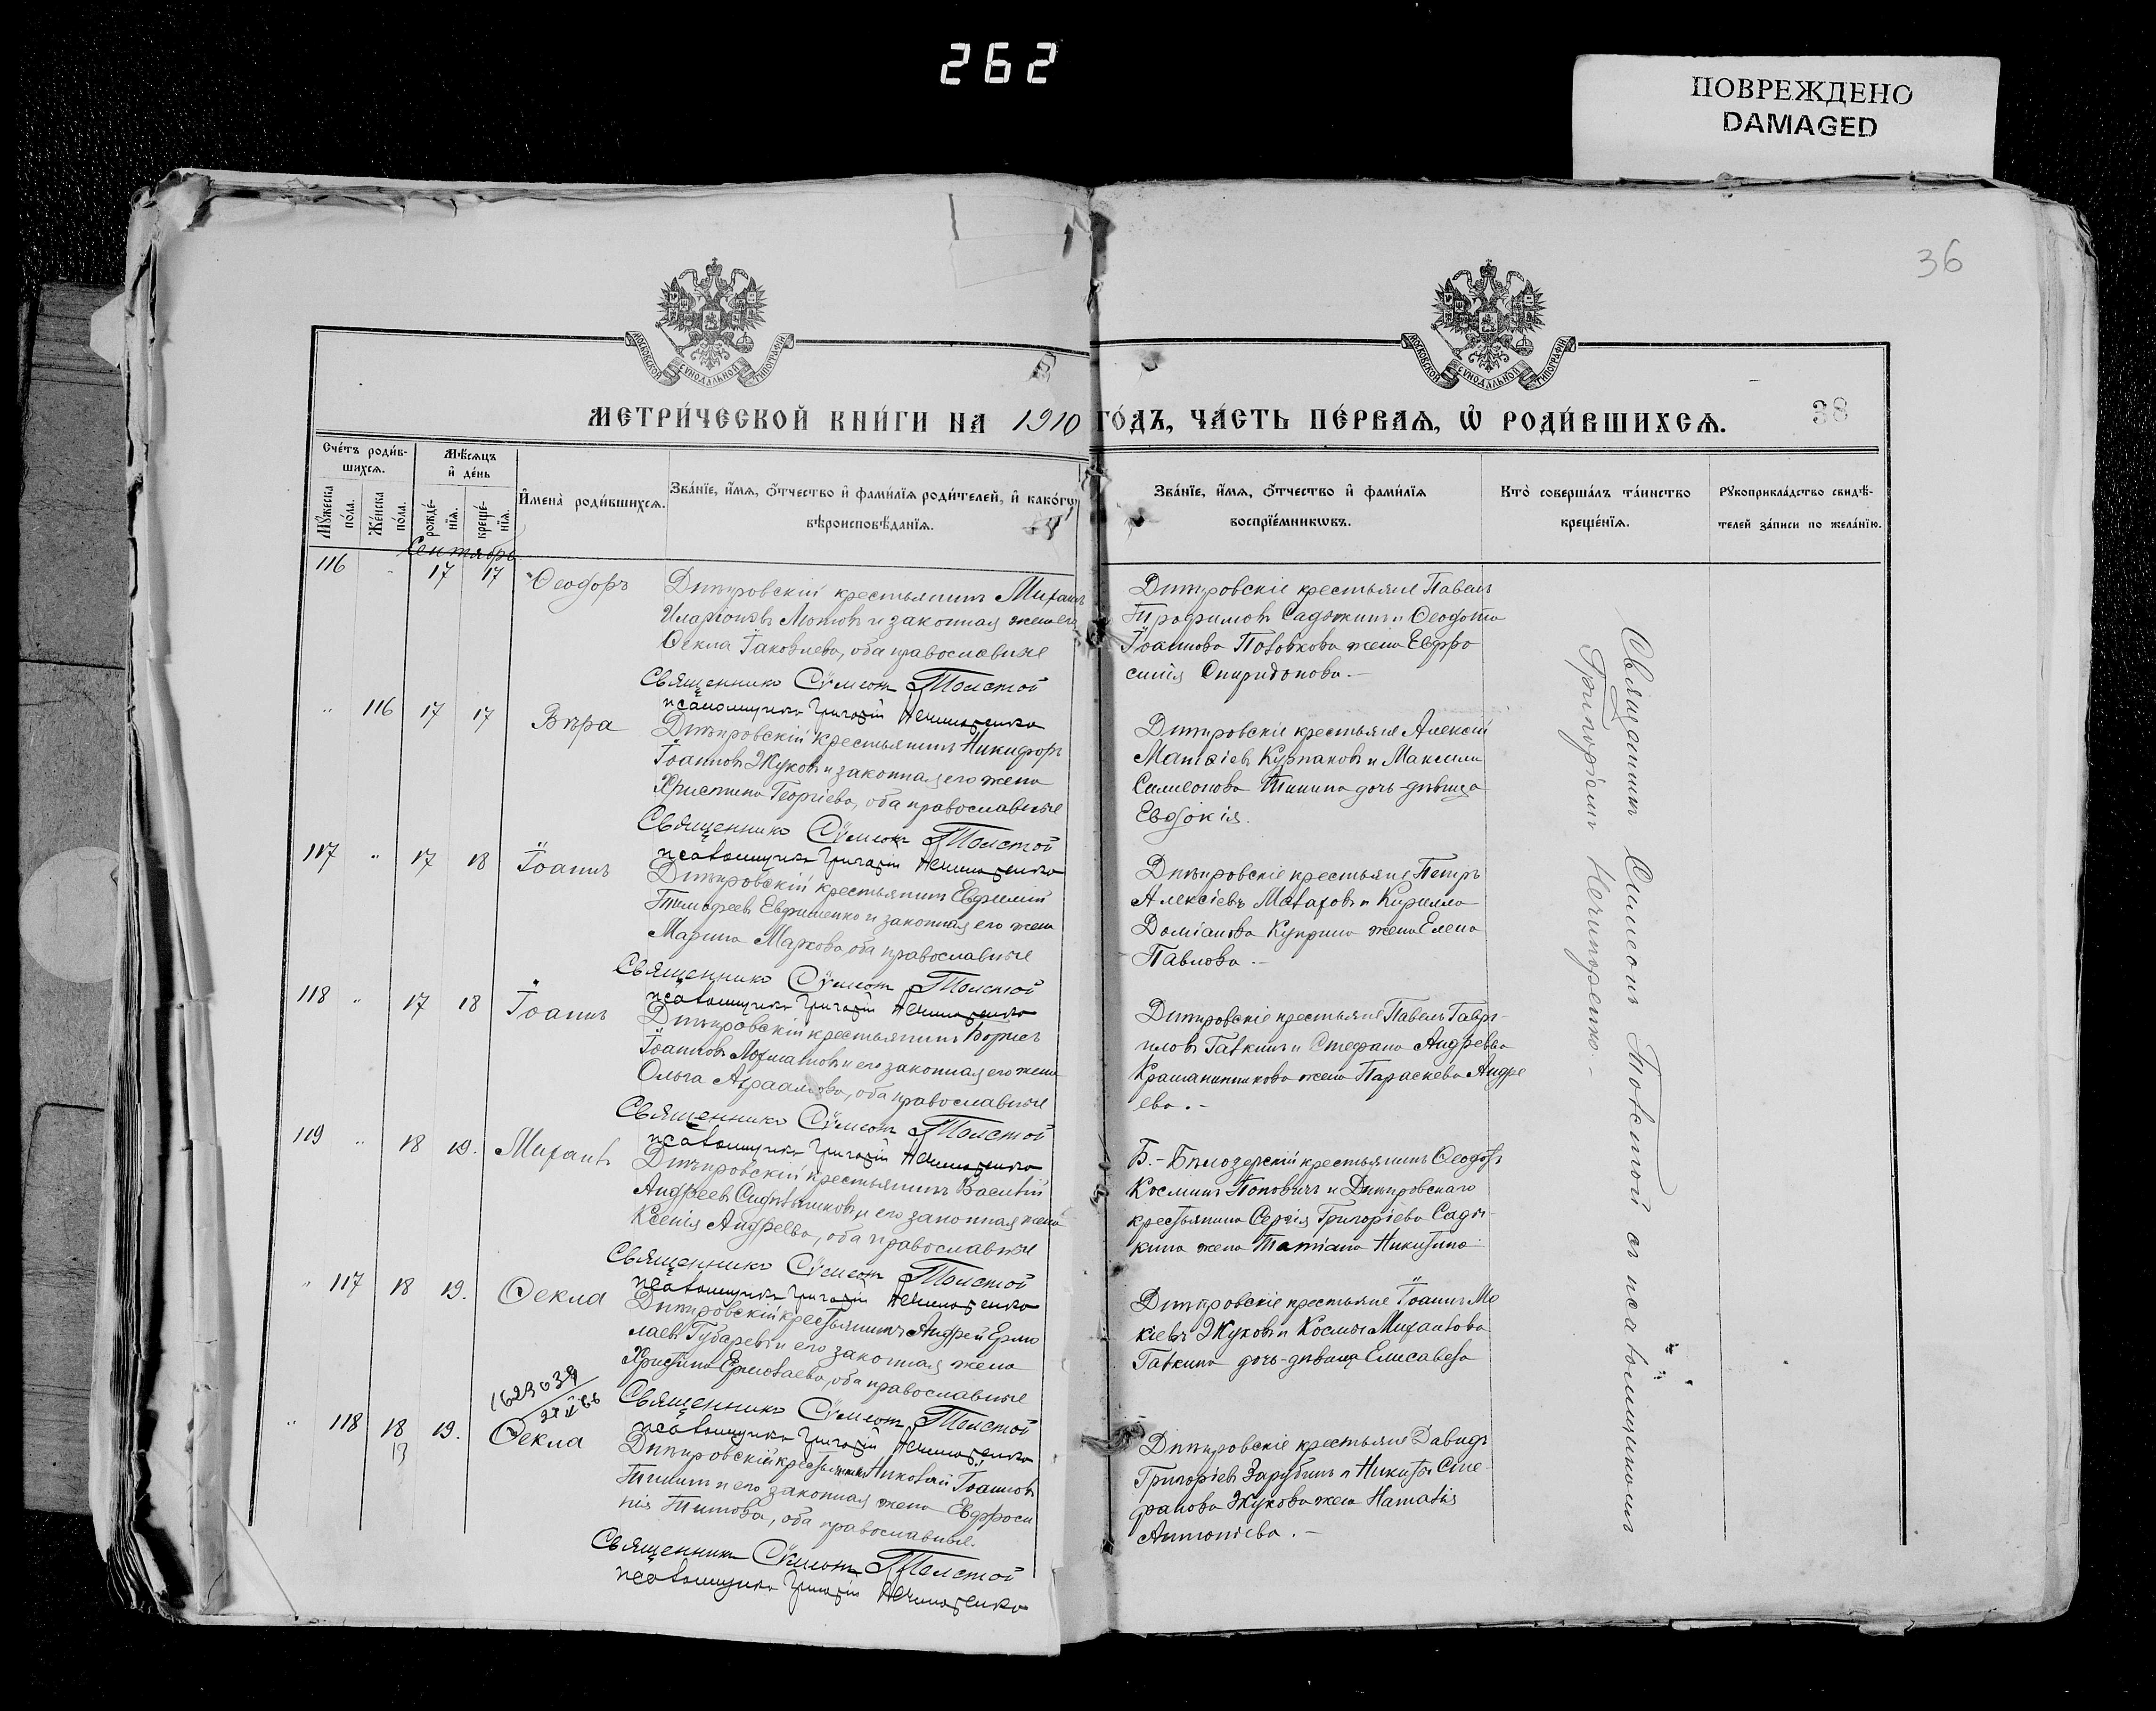 262
ПОВРЕЖДЕНО
DAMAGED
36
МОСКОВСКОЙ СѴНОДАЛЬНОЙ ТИПОГРАФІИ
МОСКОВСКОЙ СѴНОДАЛЬНОЙ ТИПОГРАФІИ
МЕТРИ́ЧЕСКОЙ КНИ́ГИ НА 1910 ГО́ДЪ, ЧА́СТЬ ПЕ́РВАѦ, Ѡ҆ РОДИ́ВШИХСѦ.
38
Сче́тъ роди́в-
шихсѧ.
Мѣ́сѧцъ
и҆ де́нь
Мꙋ́жеска
по́ла.
Же́нска
по́ла.
рожде́-
нїѧ.
креще́-
нїѧ.
И҆мена̀ роди́вшихсѧ.
Зва́нїе, и҆́мѧ, ѻ҆́тчество и҆ фами́лїѧ роди́телей, и҆ како́гѡ
вѣроисповѣ́данїѧ.
Зва́нїе, и҆́мѧ, ѻ҆́тчество и҆ фами́лїѧ
воспрїе́мникѡвъ.
Кто̀ соверша́лъ та́инство
креще́нїѧ.
Рꙋкоприкла́дство свидѣ́-
телей за́писи по жела́нїю.
Сентябрь
116 " 17 17 Ѳеодоръ
Днѣпровскій крестьянинъ Михаилъ
Иларіоновъ Лютовъ и законная жена его
Ѳекла Іаковлева, оба православные
Священникъ Сѵмеонъ Толстой
псаломщикъ Григорій Нечипоренко
Днѣпровскіе крестьяне Павелъ
Трофимовъ Садэкинъ и Ѳеодота
Іоаннова Половкова жена Евфро
синія Спиридонова.-
" 116 17 17 Вѣра
Днѣпровскій крестьянинъ Никифоръ
Іоанновъ Жуковъ и законная его жена
Христина Георгіева, оба православные
Священникъ Сѵмеонъ Толстой
псаломщикъ Григорій Нечипоренко
Днѣпровскіе крестьяне Алексій
Матѳіевъ Курпаковъ и Максима
Симеонова Тинина дочь-дѣвица
Евдокія.
117 " 17 18 Іоаннъ
Днѣпровскій крестьянинъ Евфимій
Тимофеевъ Евфименко и законная его жена
Марина Маркова, оба православные
Священникъ Сѵмеонъ Толстой
псаломщикъ Григорій Нечипоренко
Днѣпровскіе крестьяне Петръ
Алексіевъ Малаховъ и Кирилла
Доміанова Куприна жена Елена
Павлова.-
118 " 17 18 Іоаннъ
Днѣпровскій крестьянинъ Борисъ
Іоанновъ Лохмановъ и его законная его жена
Ольга Авраамова, оба православные
Священникъ Сѵмеонъ Толстой
псаломщикъ Григорій Нечипоренко
Днѣпровскіе крестьяне Павелъ Гаврі-
иловъ Галкинъ и Стефана Андреева
жена Параскева Андре
ева.-
119 " 18 19. Михаилъ
Днѣпровскій крестьянинъ Василій
Андреевъ Сидѣльниковъ и его законная жена
Ксенія Андреева, оба православные
Священникъ Сѵмеонъ Толстой
псаломщикъ Григорій Нечипоренко
Б.-Бѣлозерскій крестьянинъ Ѳеодоръ
Косминъ Поповичъ и Днѣпровскаго
крестьянина Сергія Григоріева Садэ-
кина жена Татіана Никитина
" 117 18 19. Ѳекла
Днѣпровскій крестьянинъ Андрей Ермо
лаевъ Губаревъ и его законная жена
Христина Ермолаева, оба православные
Священникъ Сѵмеонъ Толстой
псаломщикъ Григорій Нечипоренко
Днѣпровскіе крестьяне Іоаннъ Мо
кіевъ Жуковъ и Космы Михаилова
Галкина дочь-дѣвица Елисавета
1623039
" 118 18 19. Ѳекла
19
Днѣпровскій крестьянинъ Николай Іоанновъ
Тининъ и его законная жена Евфроси
нія Титова, оба православные.
Священникъ Сѵмеонъ Толстой
псаломщикъ Григорій Нечипоренко
Днѣпровскіе крестьяне Давидъ
Григоріевъ Зарубинъ и Никиты Сте-
фанова Жукова жена Наталія
Антоніева.-
Священникъ Симеонъ Толстой съ псаломщикомъ
Григоріемъ Нечипоренко.-